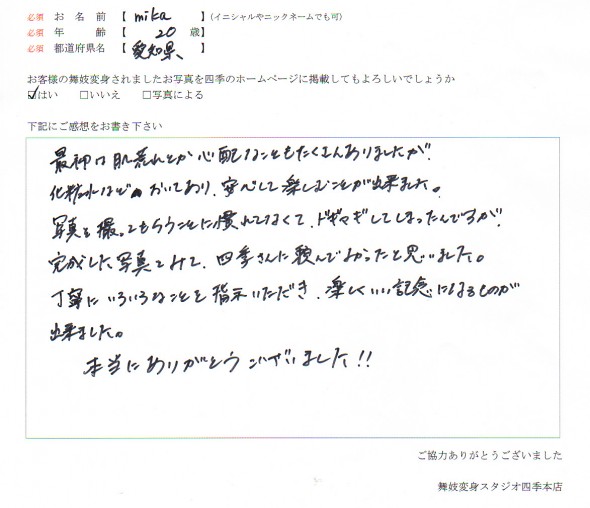 必須 お名前 【 mika 】(イニシャルやニックネームでも可)
必須 年齢 【 20 歳】
必須 都道府県名 【 愛知県 】
お客様の舞妓変身されましたお写真を四季のホームページに掲載してもよろしいでしょうか
☑はい □いいえ □写真による
下記にご感想をお書き下さい
最初は肌荒れとか心配なこともたくさんありましたが、
化粧水など おいてあり、安心して楽しむことが出来ました。
写真を撮ってもらうことに慣れてなくて、ドギマギしてしまったんですが、
完成した写真をみて、四季さんに頼んでよかったと思いました。
丁寧にいろいろなことを指示いただき、楽しくいい記念になるものが
出来ました。
本当にありがとうございました!!
ご協力ありがとうございました
舞妓変身スタジオ四季本店